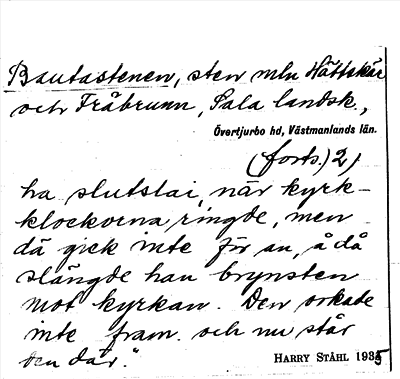 Bautastenen, sten mln Hättskär
och Fråbrunn, Sala landsk.,
Övertjurbo hd, Västmanlands län.
(forts.) 2).
ha slutslai, när kyrk-
klockorna ringde, men
dä gick inte för an, å då
slängde han brynsten
mot kyrkan. Den orkade
inte fram. och nu står
den där."
HARRY STÅHL 1935